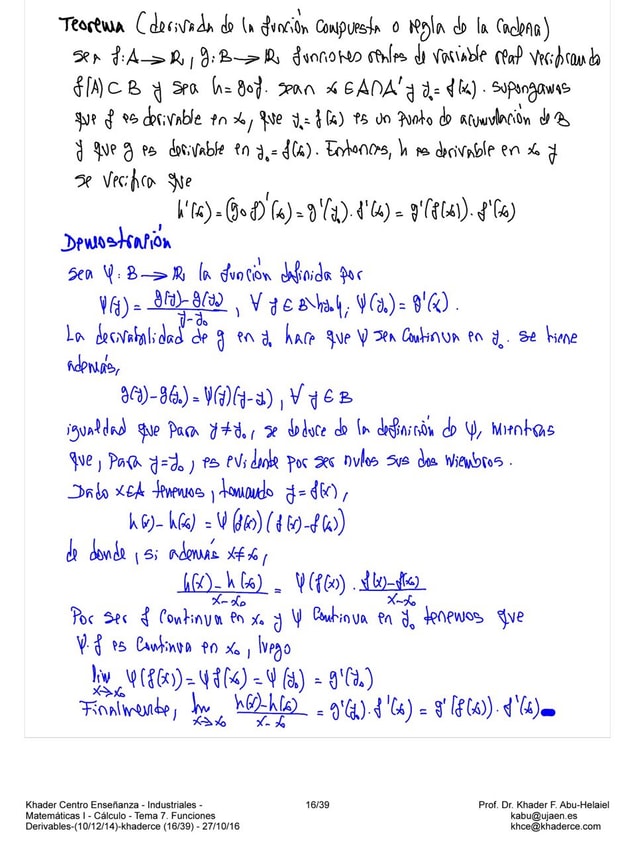 Teorema (derivada de la función compuesta o regla de la cadena)
sea f:A→R, g:B→R funciones reales de variable real verificando
f(A)⊂B y sea h=gof. sean x₀∈A∩A' y y₀=f(x₀). Supongamos
que f es derivable en x₀, que y₀=f(x₀) es un punto de acumulación de B
y que g es derivable en y₀=f(x₀). Entonces, h es derivable en x₀ y
se verifica que
h'(x₀)=(gof)'(x₀)=g'(y₀).f'(x₀)=g'(f(x₀)).f'(x₀)
Demostración
Sea Ψ:B→R la función definida por
Ψ(y)=(g(y)-g(y₀))/(y-y₀), ∀ y∈B\{y₀}; Ψ(y₀)=g'(y₀).
La derivabilidad de g en y₀ hace que Ψ sea continua en y₀. Se tiene
además,
g(y)-g(y₀)=Ψ(y)(y-y₀), ∀ y∈B
igualdad que para y≠y₀, se deduce de la definición de Ψ, mientras
que, para y=y₀, es evidente por ser nulos sus dos miembros.
Dado x∈A tenemos, tomando y=f(x),
h(x)-h(x₀)=Ψ(f(x))(f(x)-f(x₀))
de donde, si además x≠x₀,
(h(x)-h(x₀))/(x-x₀) = Ψ(f(x)).(f(x)-f(x₀))/(x-x₀)
Por ser f continua en x₀ y Ψ continua en y₀ tenemos que
Ψ.f es continua en x₀, luego
lim x→x₀ Ψ(f(x))=Ψf(x₀)=Ψ(y₀)=g'(y₀)
Finalmente, lim x→x₀ (h(x)-h(x₀))/(x-x₀) = g'(y₀).f'(x₀)=g'(f(x₀)).f'(x₀)
Khader Centro Enseñanza - Industriales -
Matemáticas I - Cálculo - Tema 7. Funciones
Derivables-(10/12/14)-khaderce (16/39) - 27/10/16
16/39
Prof. Dr. Khader F. Abu-Helaiel
kabu@ujaen.es
khce@khaderce.com